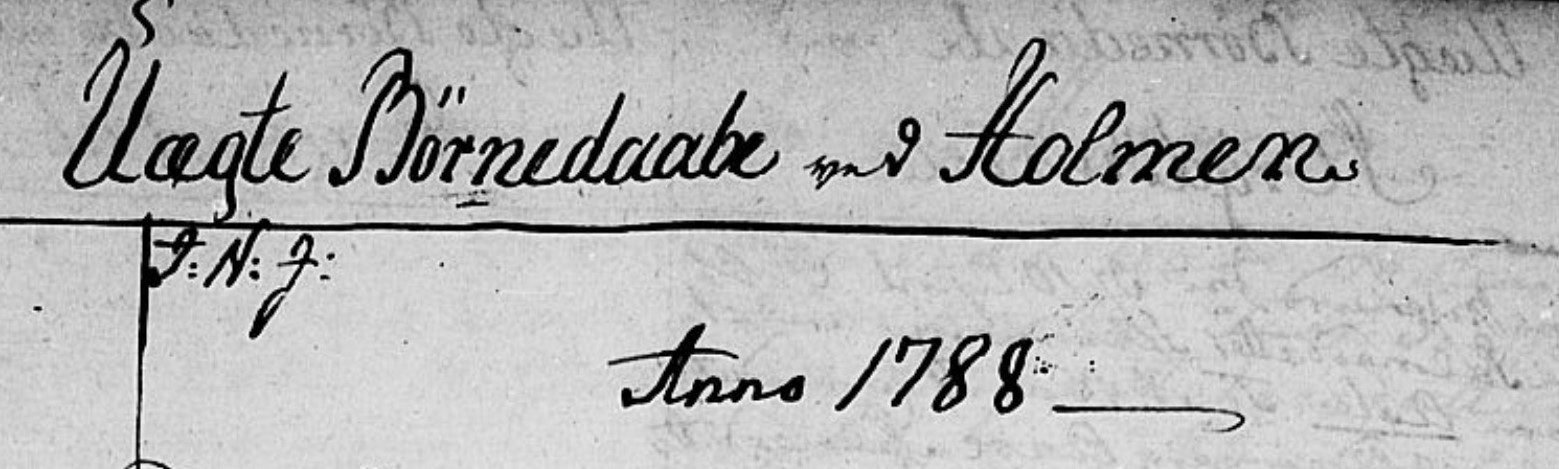 Uægte Börnedaabe ved Holmen.
I: N: J:
Anno 1788